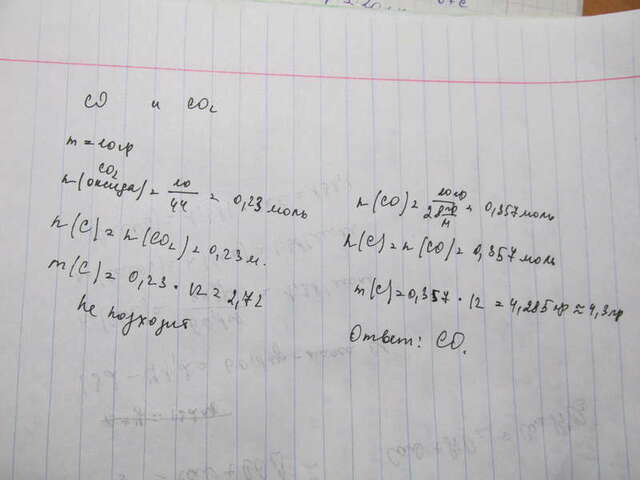 CO и CO₂
m = 10гр
CO₂
n(оксида) = 10/44 = 0,23 моль
n(C) = n(CO₂) = 0,23 м.
m(C) = 0,23 · 12 = 2,72
не подходит
n(CO) = 10гр/28гр/м = 0,357 моль
n(C) = n(CO) = 0,357 моль
m(C) = 0,357 · 12 = 4,285 гр ≈ 4,3 гр
Ответ: CO.